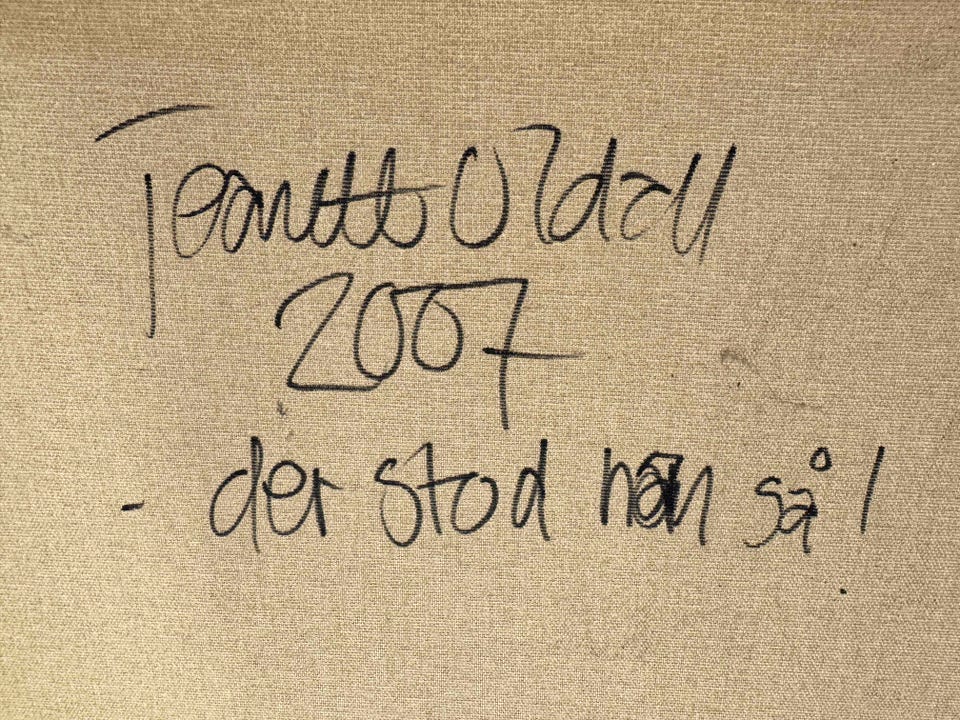 Jeanett Oldall
2007
- der stod han så!